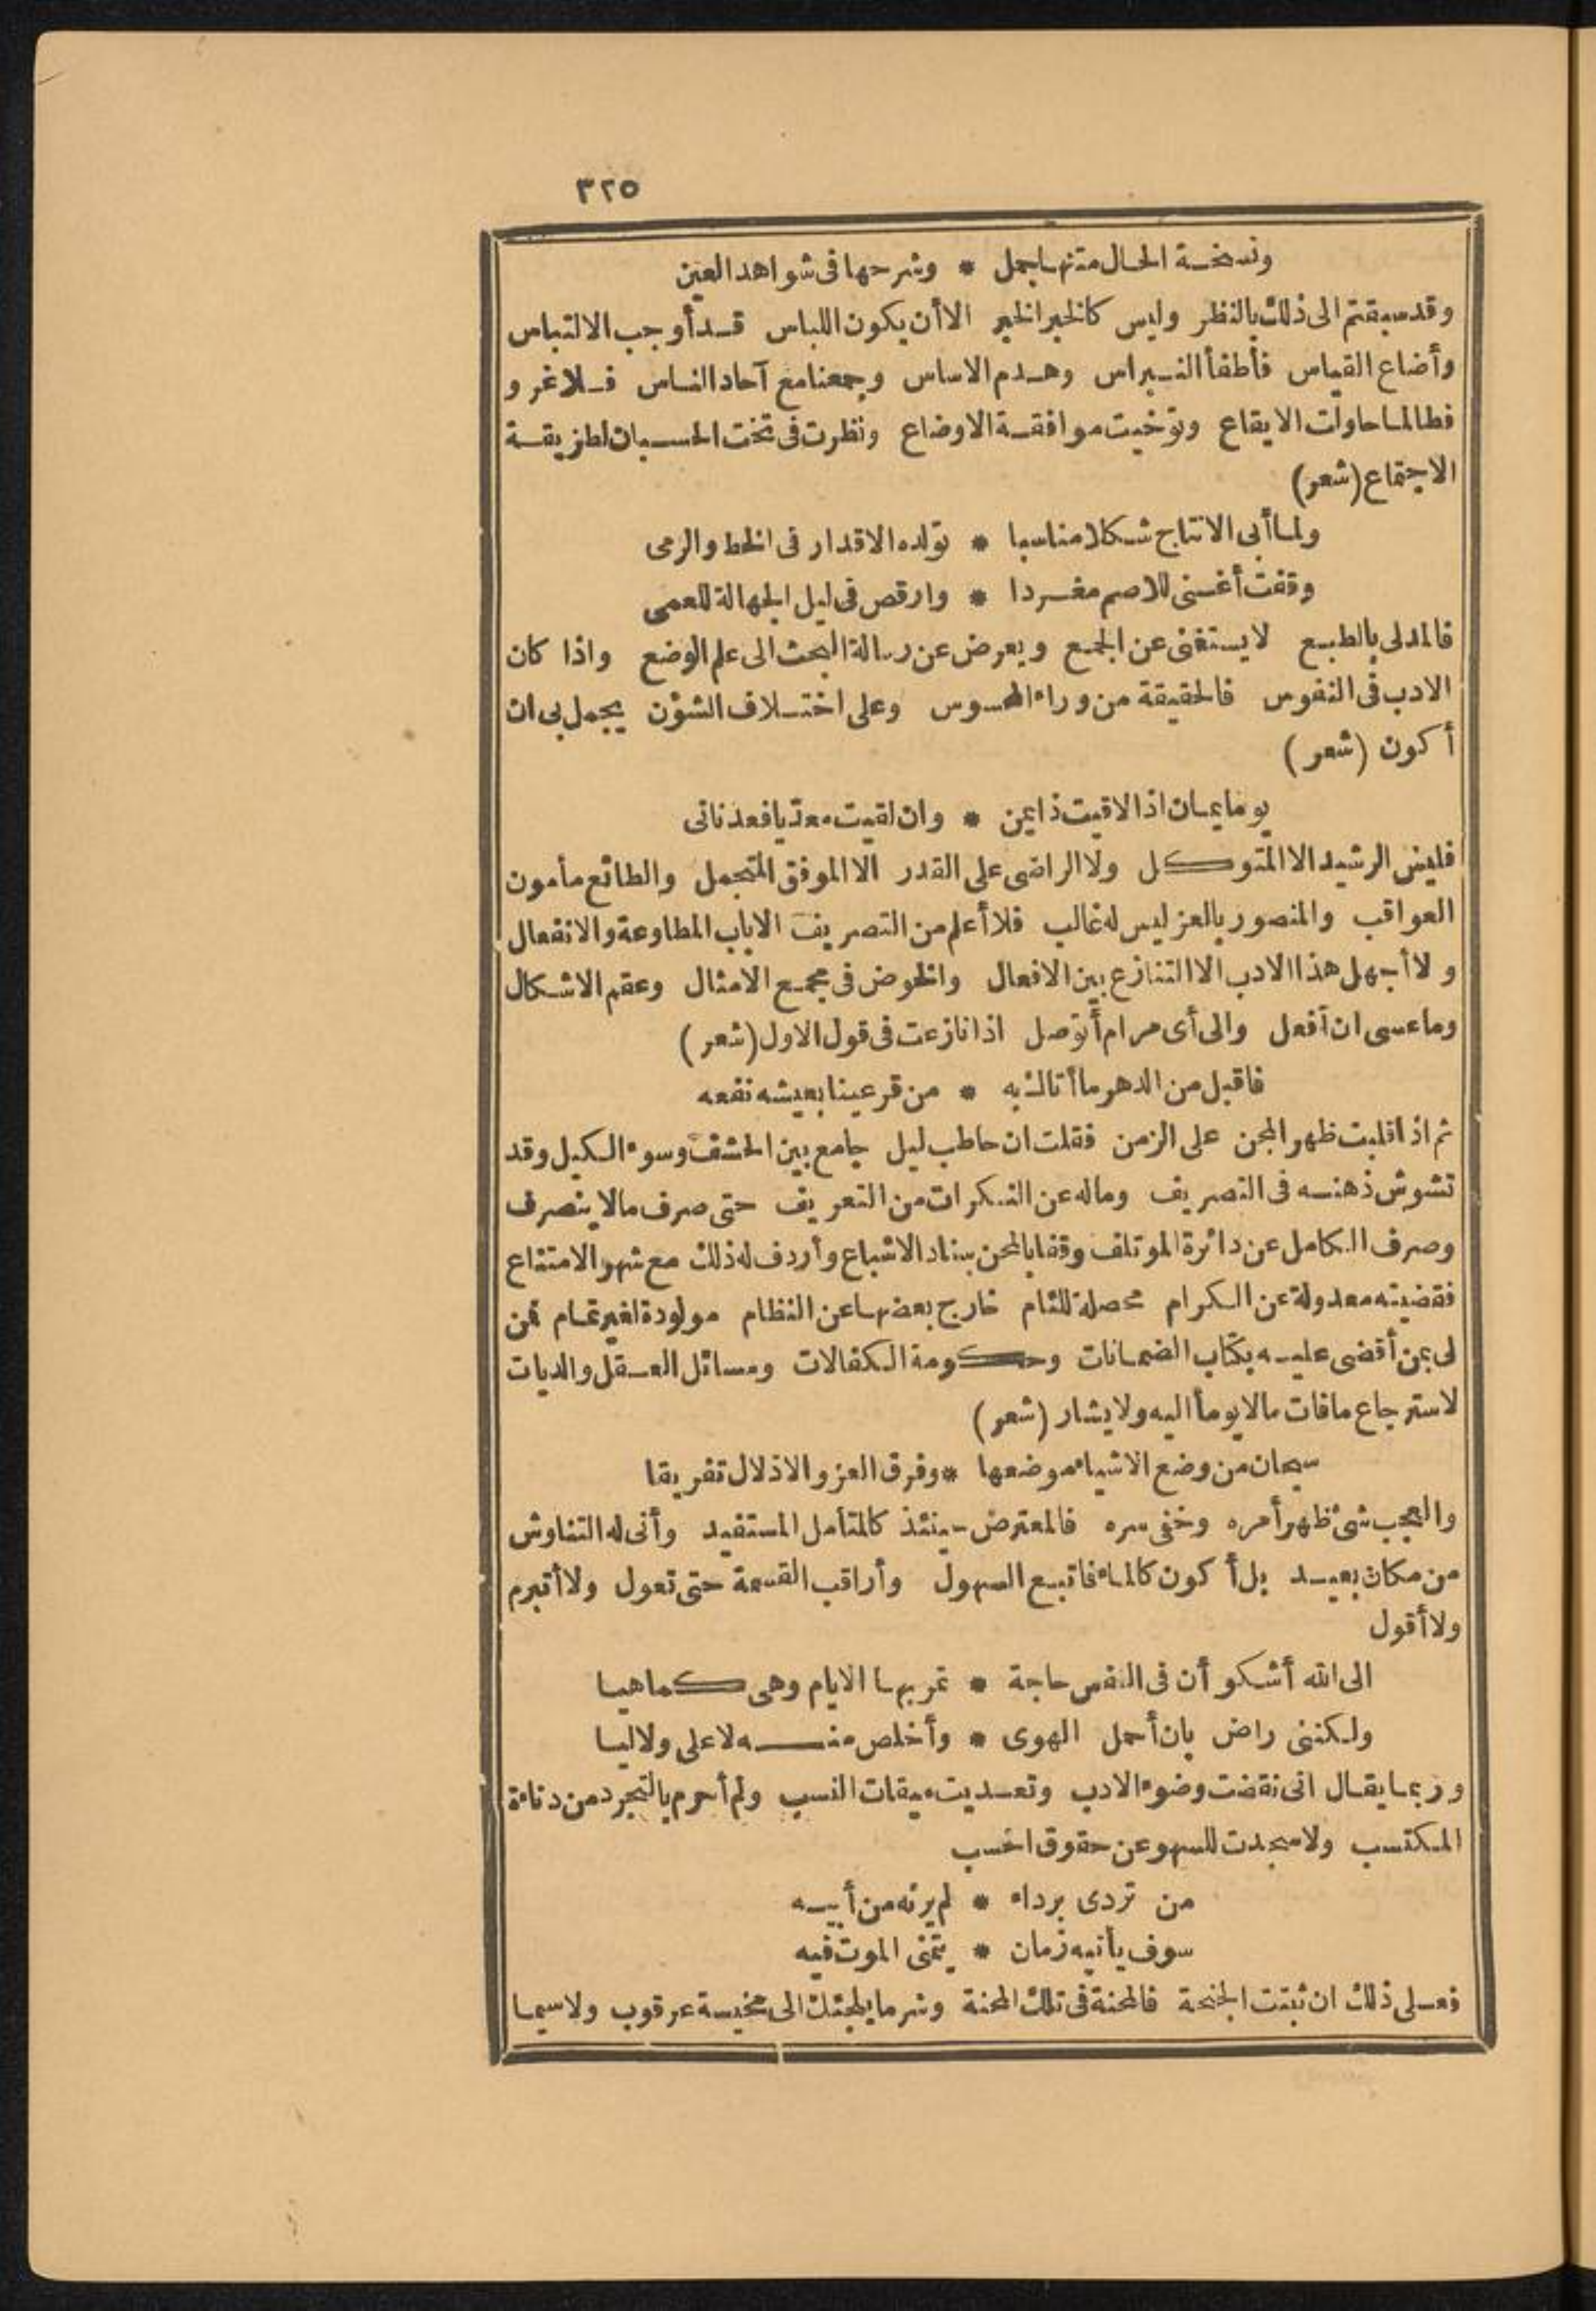 ٣٢٥
ونسخة الحال متنها جمل * وشرحها فى شواهد العين
وقد سبقتم الى ذلك بالنظر وليس كالخبر الخبر الا أن يكون اللباس قد أوجب الالتباس
وأضاع القياس فأطفأ النبراس وهدم الاساس وجمعنا مع آحاد الناس فلا غرو
فطالما حاولت الايقاع وتوخيت موافقة الاوضاع ونظرت فى تخت الحسبان لطريقة
الاجتماع (شعر)
ولما أبى الانتاج شكلا مناسبا * تولده الاقدار فى الخط والرمى
وقفت أغنى للاصم مغردا * وارقص فى ليل الجهالة للعمى
فالمدلى بالطبع لا يستغنى عن الجمع ويعرض عن رسالة البحث الى علم الوضع واذا كان
الادب فى النفوس فالحقيقة من وراء المحسوس وعلى اختلاف الشؤن يجمل بى ان
أكون (شعر)
يوما يمان اذا لاقيت ذا يمن * وان لقيت معديا فعدنانى
فليس الرشيد الا المتوكل ولا الراضى على القدر الا الموفق المتجمل والطائع مأمون
العواقب والمنصور بالعز ليس له غالب فلا أعلم من التصريف الا باب المطاوعة والانفعال
ولا أجهل هذا الادب الا التنازع بين الافعال والخوض فى مجمع الامثال وعقم الاشكال
وما عسى ان أفعل والى أى مرام أتوصل اذا نازعت فى قول الاول (شعر)
فاقبل من الدهر ما أتاك به * من قر عينا بعيشه نفعه
ثم اذا قلبت ظهر المجن على الزمن فقلت ان حاطب ليل جامع بين الحشف وسوء الكيل وقد
تشوش ذهنه فى التصريف وماله عن النكرات من التعريف حتى صرف مالا ينصرف
وصرف الكامل عن دائرة الموتلف وقفا بالمحن سناد الاشباع وأردف له ذلك مع شهو الامتناع
فقضيته معدولة عن الكرام محصلة للئام خارج بعضها عن النظام مولودة لغير تمام فمن
لى بمن أقضى عليه بكتاب الضمانات وحكومة الكفالات ومسائل العقل والديات
لاسترجاع مافات مالا يومأ اليه ولا يشار (شعر)
سبحان من وضع الاشياء موضعها * وفرق العز والاذلال تفريقا
والعجب شئ ظهر أمره وخفى سره فالمعترض حينئذ كالمتأمل المستفيد وأنى له التناوش
من مكان بعيد بل أكون كالماء فاتبع السهول وأراقب القسمة حتى تعول ولا أتبرم
ولا أقول
الى الله أشكو أن فى النفس حاجة * تمر بها الايام وهى كماهيا
ولكننى راض بان أحمل الهوى * وأخلص منه لا على ولا ليا
وربما يقال انى نقضت وضوء الادب وتعديت ميقات النسب ولم أحرم بالتجرد من دناءة
المكتسب ولا سجدت للسهو عن حقوق الحسب
من تردى برداء * لم يرثه من أبيه
سوف يأتيه زمان * يتمنى الموت فيه
فعلى ذلك ان ثبتت الجنحة فالمحنة فى تلك المحنة وشر ما يلجئك الى مخيسة عرقوب ولا سيما